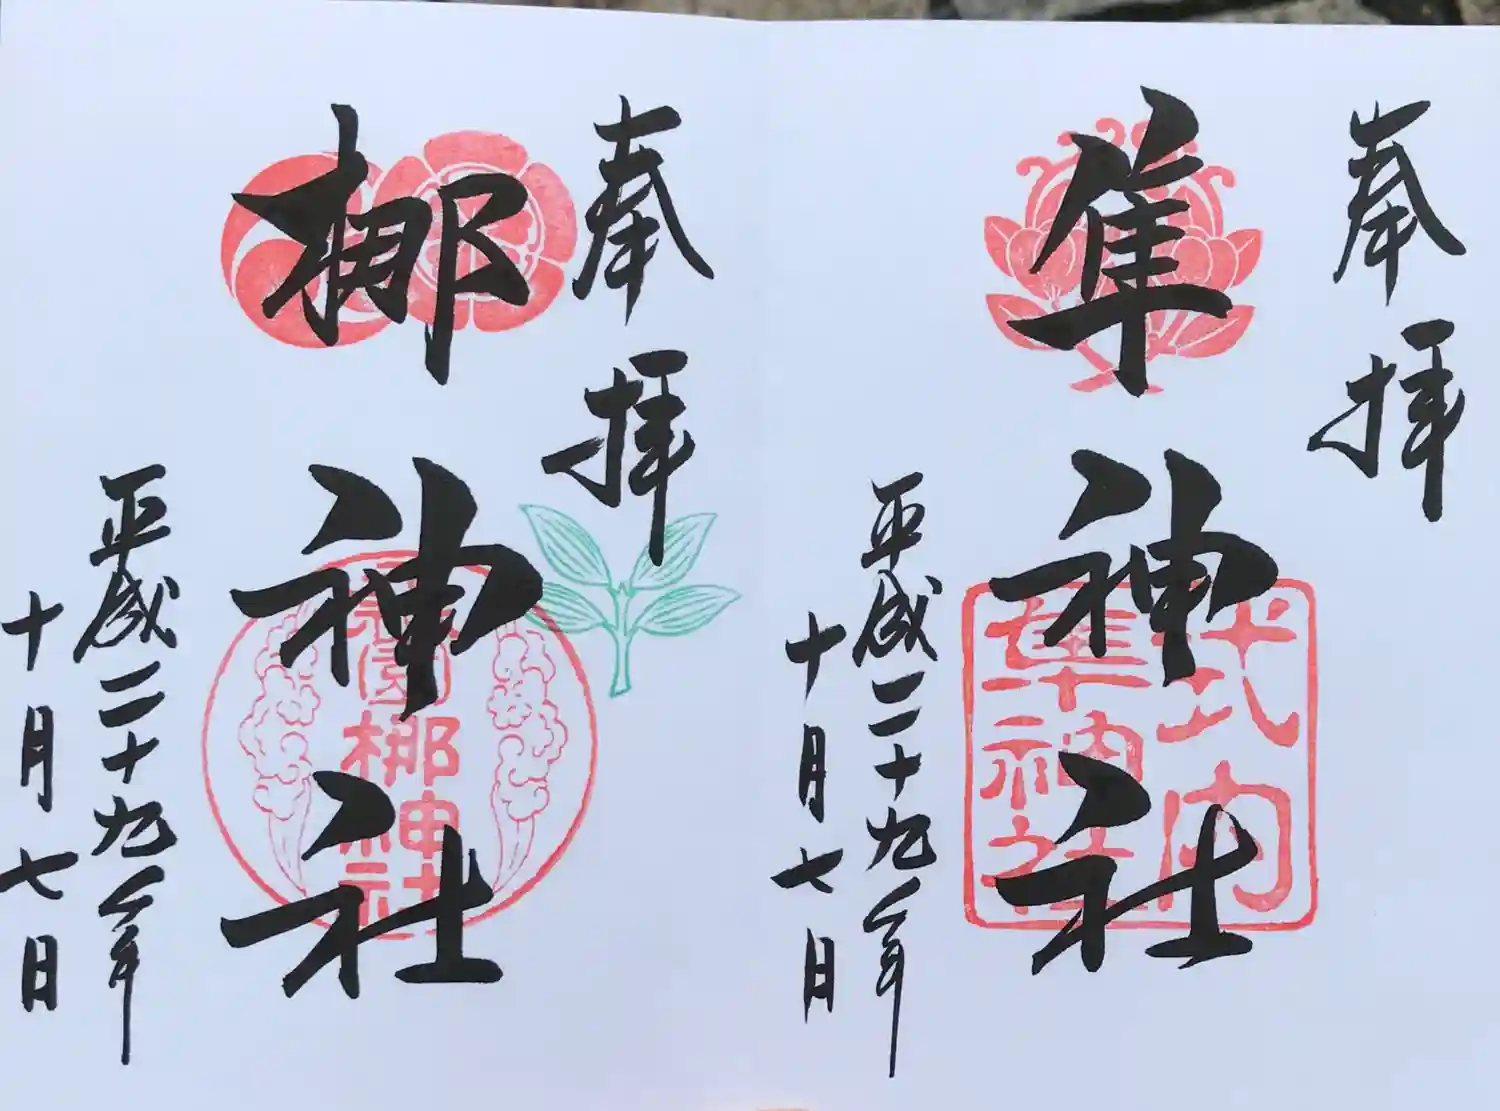 奉拝
隼神社
式内
隼神社
平成二十九年
十月七日
奉拝
梛神社
元祇園
梛神社
平成二十九年
十月七日